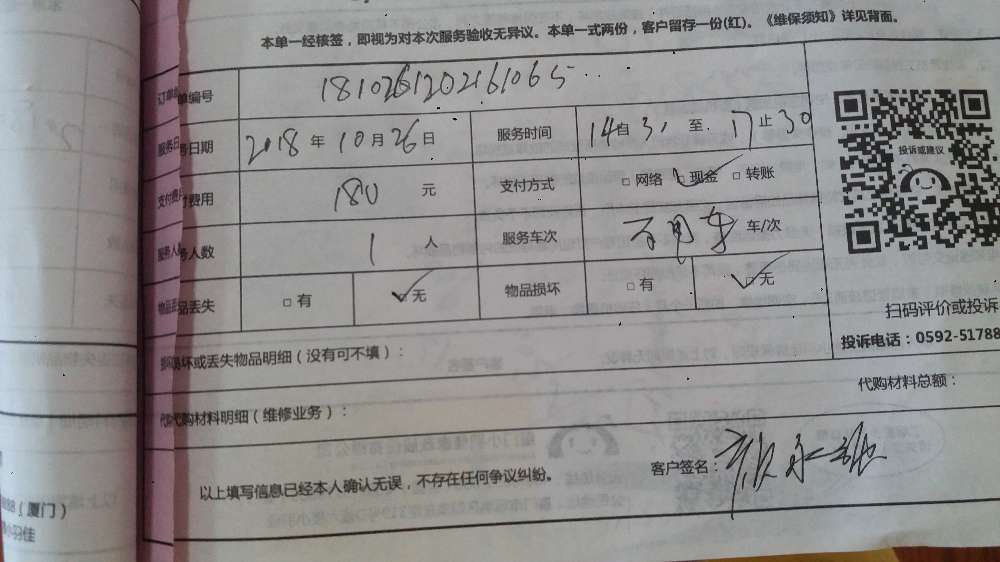 本单一经核签，即视为对本次服务验收无异议。本单一式两份，客户留存一份(红)。《维保须知》详见背面。
订单编号 1810261202161065
服务日期 2018 年 10 月 26 日 服务时间 14 自 30 至 17 止 30
支付费用 180 元 支付方式 □ 网络 □ 现金 □ 转账
服务人数 1 人 服务车次 不用车 车/次
物品丢失 □ 有 □ 无 物品损坏 □ 有 □ 无
投诉或建议
扫码评价或投诉
投诉电话：0592-51788
损坏或丢失物品明细（没有可不填）：
代购材料总额：
代购材料明细（维修业务）：
客户签名：
以上填写信息已经本人确认无误，不存在任何争议纠纷。
（厦门）
小羽佳